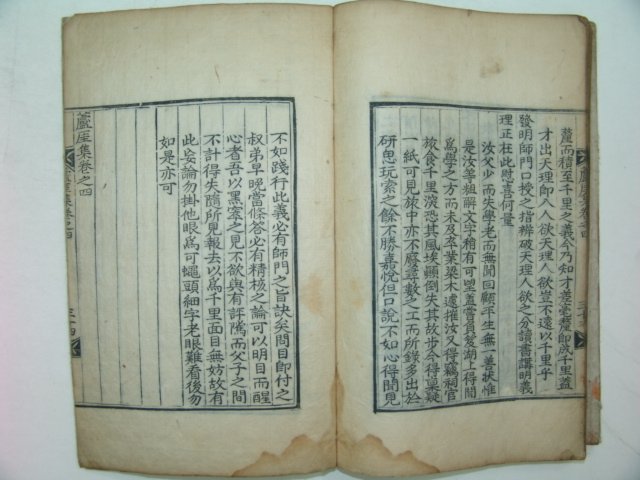 釐而積至千里之義今乃知才差毫釐即成千里蓋
才出天理即入人欲天理人欲豈不遠以千里乎
發明師門口授之指辨破天理人欲之分讀書講明義
理正在此慰喜何量
汝父少而失學老而無聞回顧平生無一善狀惟
是汝等粗解文字稍有可望盖嘗負笈湖上得聞
爲學之方而未及卒業樑木遽摧汝又得竊祠官
旅食千里深恐其風埃顚倒失其故步今得稟疑
一紙可見旅中亦不廢尋數之工而所錄多出於
研思玩索之餘不勝喜悅但口說不如心得聞見
不如踐行此義必有師門之旨訣矣問目卽付之
叔弟早晚當條答必有精核之論可以明目而醒
心者吾以黑窣之見不欲與有評隲而父子之間
不計得失隨所見報去以爲千里面目無妨故有
此妄論勿掛他眼爲可蠅頭細字老眼難看後勿
如是亦可
蘆厓集卷之四
蘆厓集卷之四
三十四